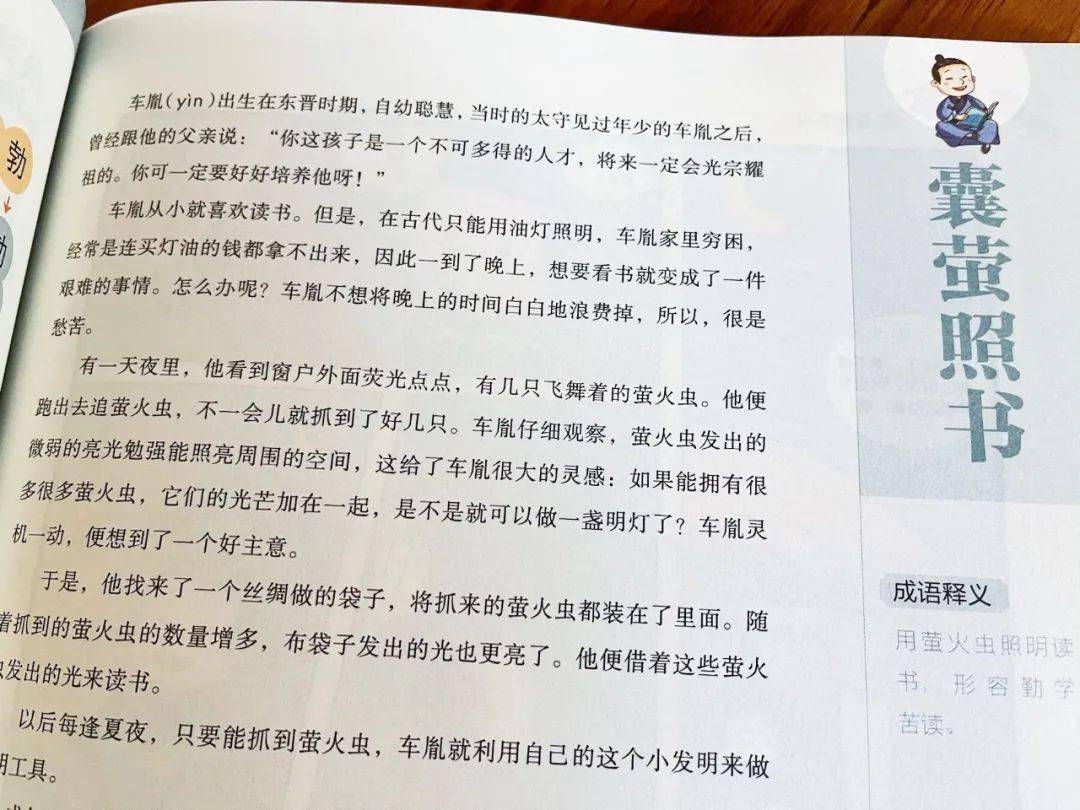 勃
车胤(yìn)出生在东晋时期，自幼聪慧，当时的太守见过年少的车胤之后，
曾经跟他的父亲说：“你这孩子是一个不可多得的人才，将来一定会光宗耀
祖的。你可一定要好好培养他呀！”
车胤从小就喜欢读书。但是，在古代只能用油灯照明，车胤家里穷困，
经常是连买灯油的钱都拿不出来，因此一到了晚上，想要看书就变成了一件
艰难的事情。怎么办呢？车胤不想将晚上的时间白白地浪费掉，所以，很是
愁苦。
有一天夜里，他看到窗户外面荧光点点，有几只飞舞着的萤火虫。他便
跑出去追萤火虫，不一会儿就抓到了好几只。车胤仔细观察，萤火虫发出的
微弱的亮光勉强能照亮周围的空间，这给了车胤很大的灵感：如果能拥有很
多很多萤火虫，它们的光芒加在一起，是不是就可以做一盏明灯了？车胤灵
机一动，便想到了一个好主意。
于是，他找来了一个丝绸做的袋子，将抓来的萤火虫都装在了里面。随
着抓到的萤火虫的数量增多，布袋子发出的光也更亮了。他便借着这些萤火
虫发出的光来读书。
以后每逢夏夜，只要能抓到萤火虫，车胤就利用自己的这个小发明来做
明工具。
囊萤照书
成语释义
用萤火虫照明读
书，形容勤学
苦读。